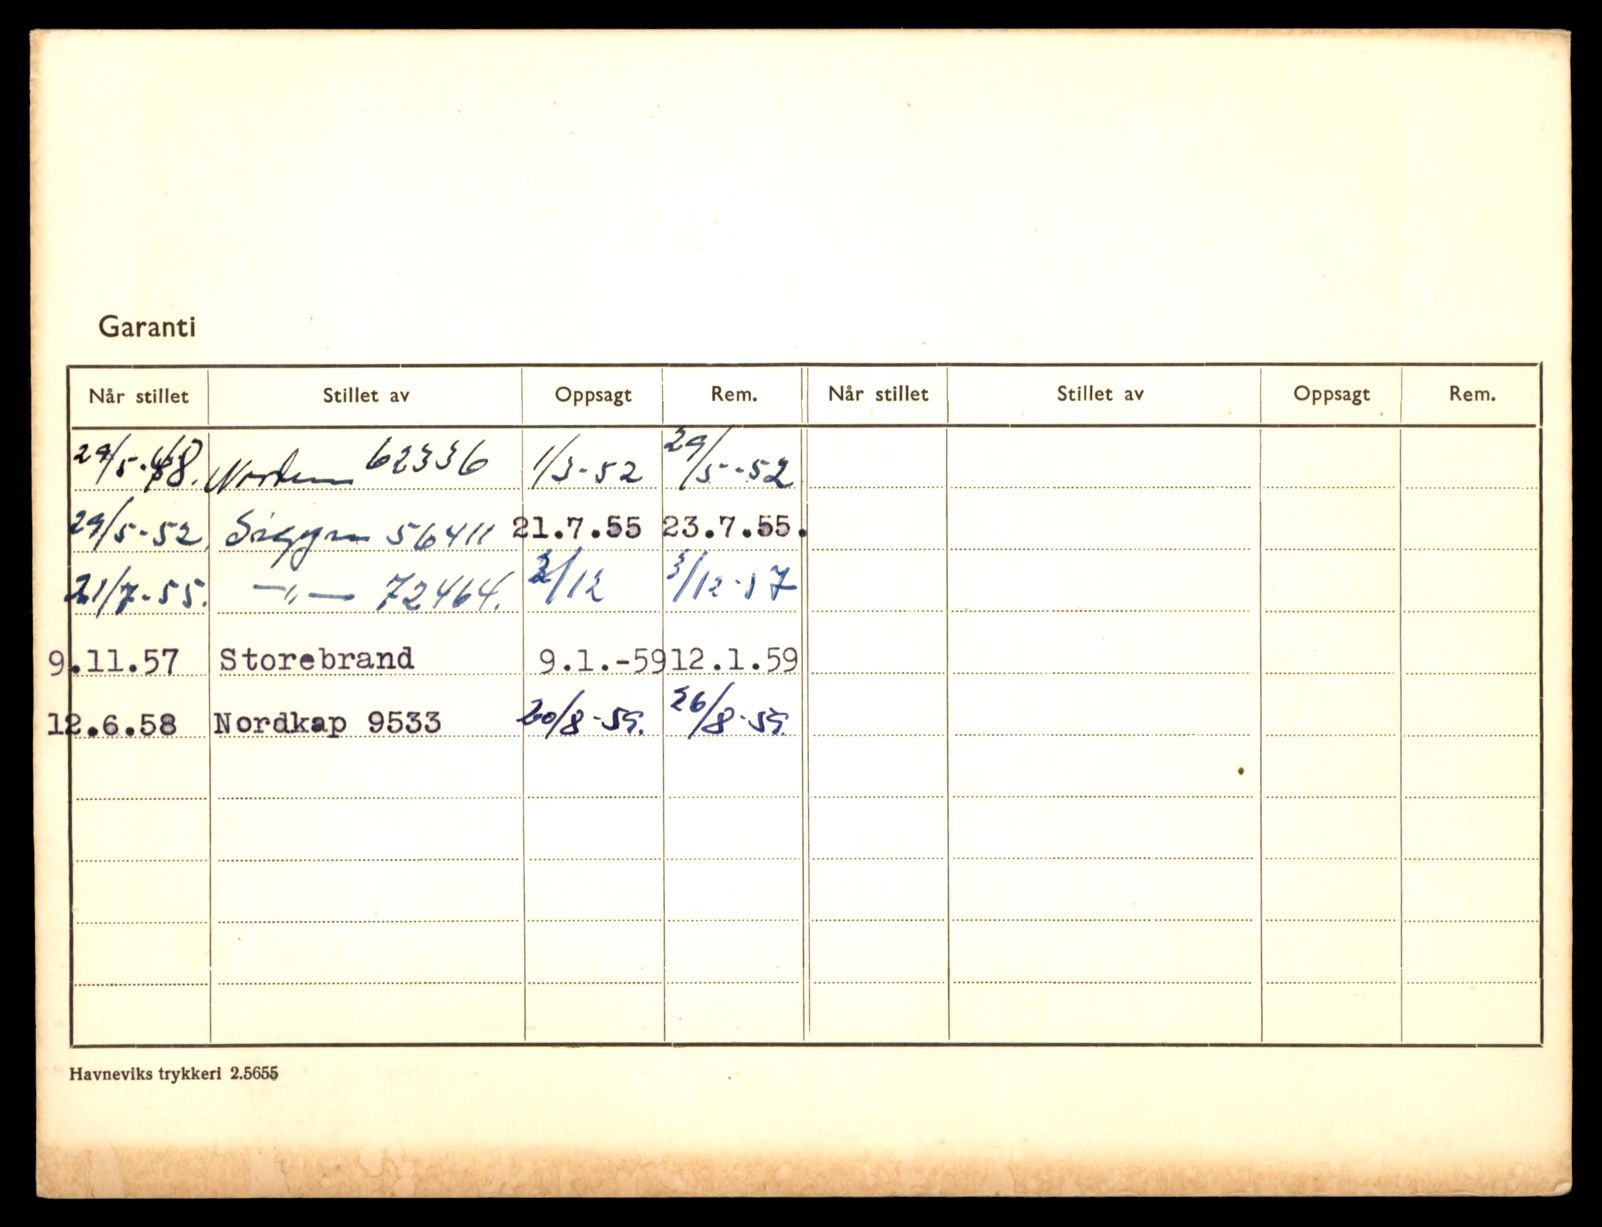 Garanti
Når stillet Stillet av Oppsagt Rem. Når stillet Stillet av Oppsagt Rem.
29/5-48. Norden 62336 1/3-52 29/5-52
29/5-52. Sigyn 56411 21.7.55 23.7.55.
21/7-55. —"— 72464. 2/12 3/12-57
9.11.57 Storebrand 9.1.-59 12.1.59
12.6.58 Nordkap 9533 20/8-59. 26/8-59.
Havneviks trykkeri 2.5655